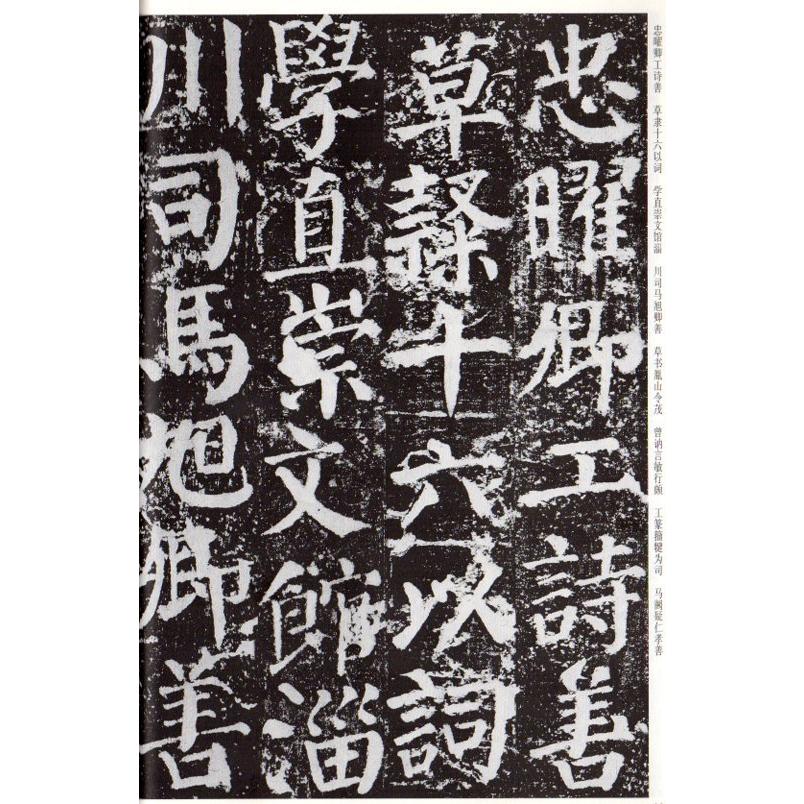 忠曜卿工詩善
草隸十六以詞
學直崇文館淄
川司馬旭卿善
忠曜卿工诗善 草隶十六以词 学直崇文馆淄 川司马旭卿善 草书胤山令茂 曾讷言敏行颇 工篆籀犍为司 马阙疑仁孝善